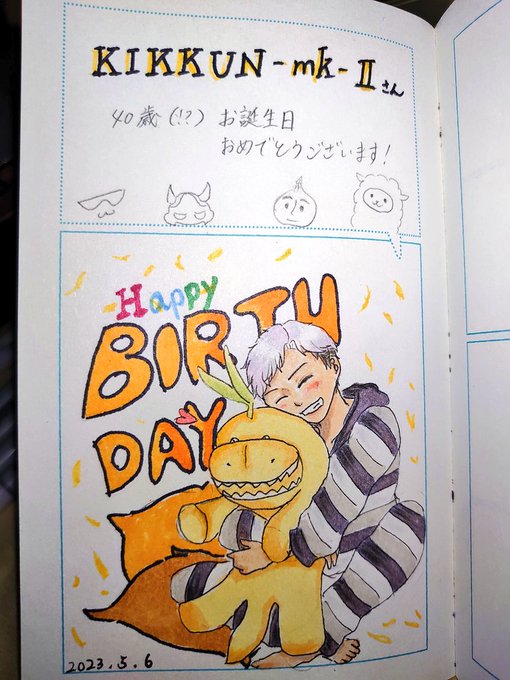 KIKKUN-mk-Ⅱさん
40歳(!?) お誕生日
おめでとうございます!
Happy
BIRTH
DAY
2023.5.6